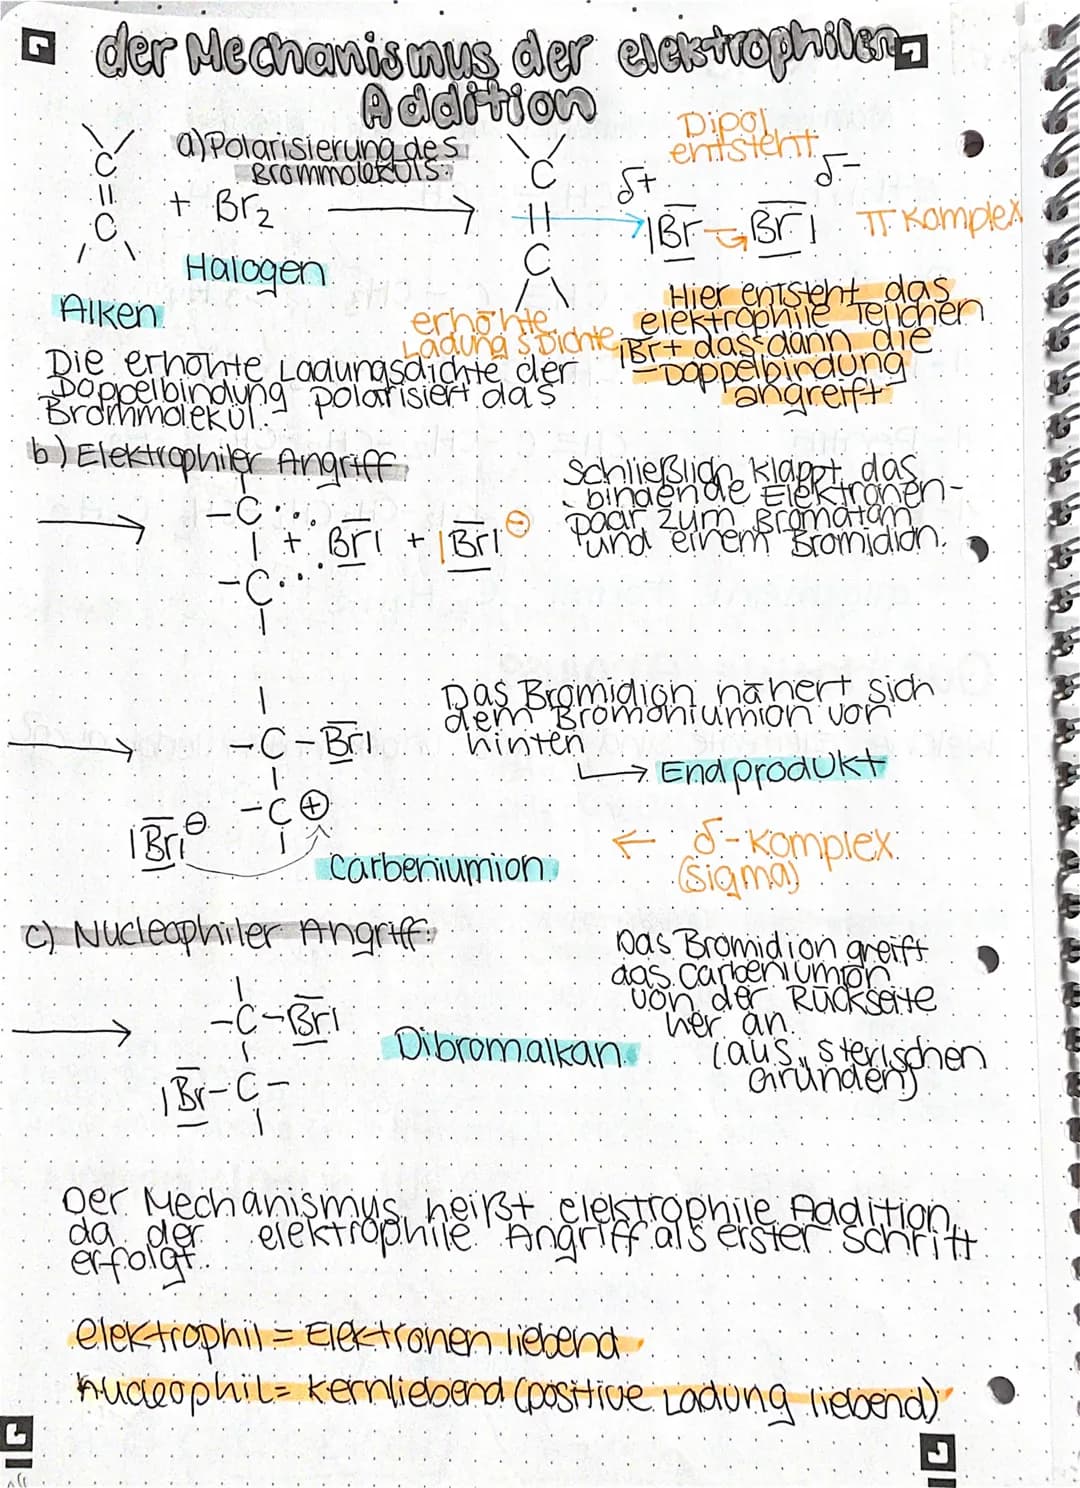 der Mechanismus der elektrophilen
Addition
a) Polarisierung des
Brommoleküls:
C
||
C
+ Br2
Halogen
Alken
C
||
C
Dipol
entsteht
δ+
δ-
|Br-Br|
π Komplex
erhöhte
Ladungsdichte
Hier entsteht das
elektrophile Teilchen
|Br+ das dann die
Doppelbindung
angreift
Die erhöhte Ladungsdichte der
Doppelbindung polarisiert das
Brommolekül.
b) Elektrophiler Angriff
-C
| + Br| + |Br|⊖
-C
Schließlich klappt das
bindende Elektronen-
paar zum Bromatom
und einem Bromidion.
-C-Br|
-C⊕
|Br|⊖
Carbeniumion
Das Bromidion nähert sich
dem Bromoniumion von
hinten
→ Endprodukt
← δ-Komplex
(sigma)
c) Nucleophiler Angriff:
-C-Br|
|Br-C-
Dibromalkan
Das Bromidion greift
das Carbeniumion
von der Rückseite
her an.
(aus sterischen
Gründen)
Der Mechanismus heißt elektrophile Addition,
da der elektrophile Angriff als erster Schritt
erfolgt.
elektrophil = Elektronen liebend
nucleophil = kernliebend (positive Ladung liebend)